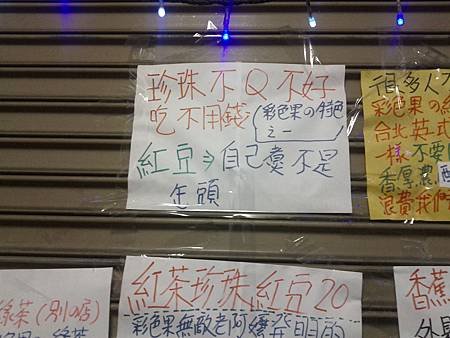 珍珠不Q不好
吃不用錢(彩色果の特色
之一
紅豆⇒自己煮不是
缶頭
很多人不
彩色果の紅
台北英式
一樣 不要
香厚濃,
浪費我們
綠茶(別の店)
紅茶珍珠紅豆20
彩色果無敵老阿嬤發明的
香蕉